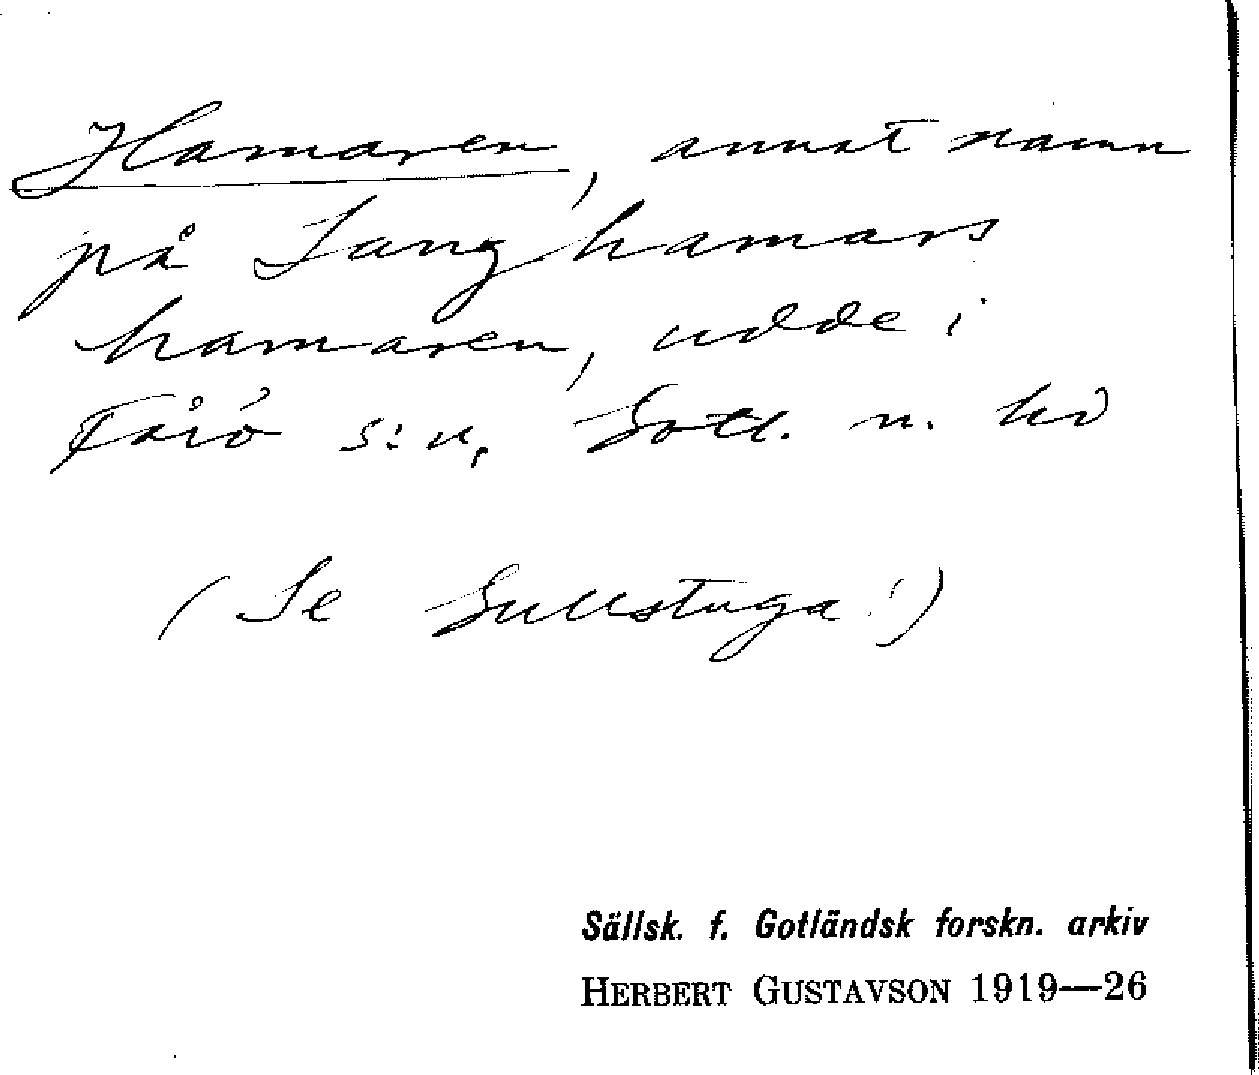 Hamaren, annat namn
på Langhamars
hamaren, udde i
Fårö s:n, Gotl. n. hd
(Se Gullstuga!)
Sällsk. f. Gotländsk forskn. arkiv
HERBERT GUSTAVSON 1919—26